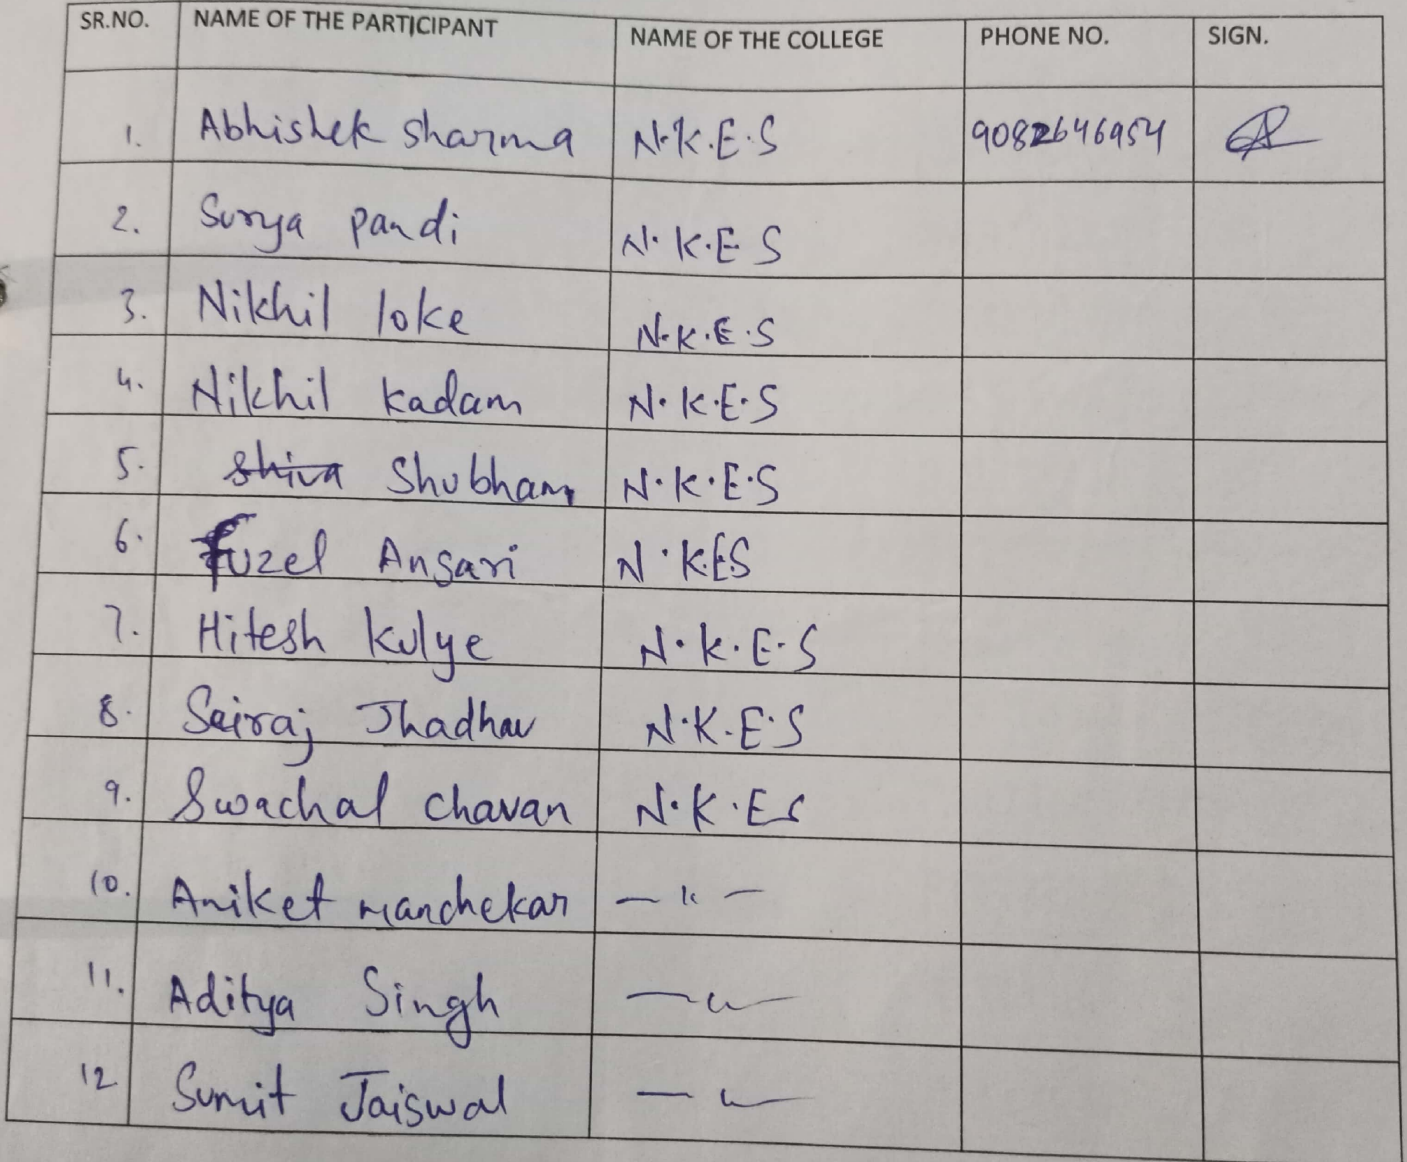 SR.NO. NAME OF THE PARTICIPANT NAME OF THE COLLEGE PHONE NO. SIGN.
1. Abhishek sharma N.K.E.S 9082646954
2. Surya pandi N.K.E S
3. Nikhil loke N.K.E.S
4. Nikhil kadam N.K.E.S
5. shiva Shubham N.K.E.S
6. Fuzel Ansari N.K.ES
7. Hitesh kulye N.K.E.S
8. Sairaj Jhadhav N.K.E.S
9. Swachal chavan N.K.ES
10. Aniket manchekar — " —
11. Aditya Singh — " —
12 Sumit Jaiswal — " —